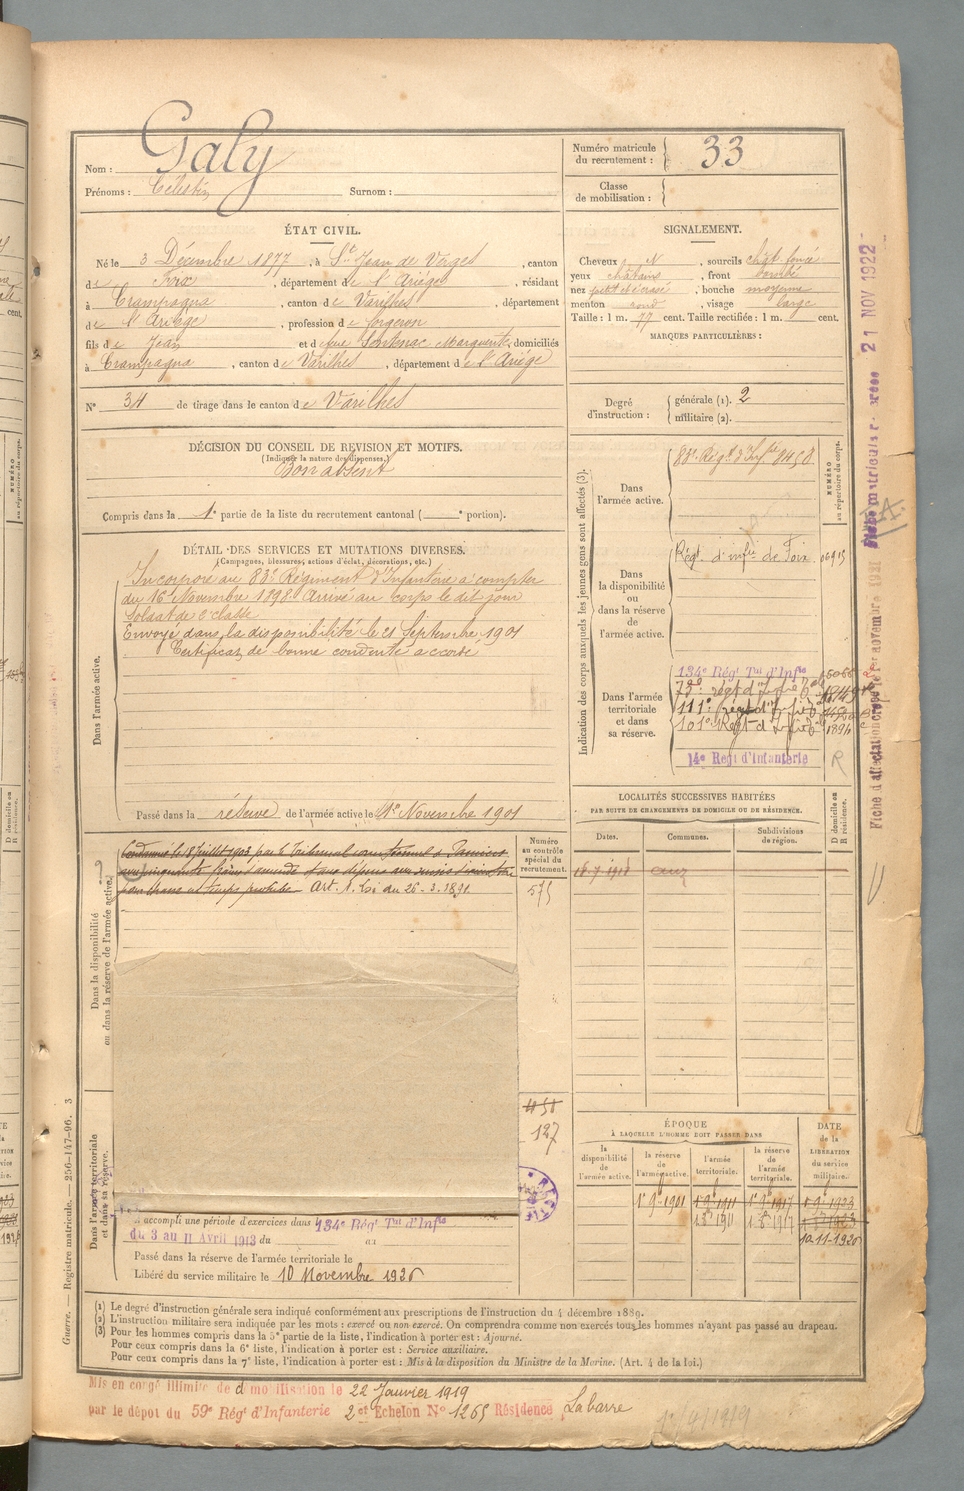 Nom : Galy
Prénoms : Célestin Surnom :
Numéro matricule du recrutement : 33
Classe de mobilisation :
ÉTAT CIVIL.
Né le 3 Décembre 1877, à St Jean de Verges, canton
de Foix, département de l'Ariège, résidant
à Crampagna, canton de Varilhes, département
de l'Ariège, profession de forgeron
fils de Jean et de feue Sentenac Marguerite, domiciliés
à Crampagna, canton de Varilhes, département de l'Ariège
N° 34 de tirage dans le canton de Varilhes
SIGNALEMENT.
Cheveux N, sourcils chât. foncé
yeux châtains, front bombé
nez petit et écrasé, bouche moyenne
menton rond, visage large
Taille : 1 m. 77 cent. Taille rectifiée : 1 m. cent.
MARQUES PARTICULIÈRES :
Degré d'instruction : générale (1). 2
militaire (2).
DÉCISION DU CONSEIL DE REVISION ET MOTIFS.
(Indiquer la nature des dispenses.)
Bon absent
Compris dans la 1e partie de la liste du recrutement cantonal ( e portion).
DÉTAIL DES SERVICES ET MUTATIONS DIVERSES.
(Campagnes, blessures, actions d'éclat, décorations, etc.)
Dans l'armée active.
Incorporé au 83e Régiment d'Infanterie à compter
du 16 Novembre 1898. Arrivé au corps le dit jour
Soldat de 2e classe
Envoyé dans la disponibilité le 21 Septembre 1901
Certificat de bonne conduite accordé
Passé dans la réserve de l'armée active le 1er Novembre 1901
Indication des corps auxquels les jeunes gens sont affectés (3).
NUMÉRO au répertoire du corps.
Dans l'armée active.
83e Régt d'Infie 8458
Dans la disponibilité ou dans la réserve de l'armée active.
Régt d'infie de Foix
Dans l'armée territoriale et dans sa réserve.
134e Régt Tal d'Infie
111e régt d'Infie
101e Régt d'Infie
14e Regt d'Infanterie
R
LOCALITÉS SUCCESSIVES HABITÉES
PAR SUITE DE CHANGEMENTS DE DOMICILE OU DE RÉSIDENCE.
Dates. Communes. Subdivisions de région. D domicile ou R résidence.
Dans la disponibilité ou dans la réserve de l'armée active.
Condamné le 18 Juillet 1903 par le Tribunal correctionnel de Pamiers
Art. 1. Loi du 26-3-1891.
Numéro au contrôle spécial du recrutement.
575
127
ÉPOQUE
À LAQUELLE L'HOMME DOIT PASSER DANS
la disponibilité de l'armée active.
la réserve de l'armée active.
l'armée territoriale.
la réserve de l'armée territoriale.
DATE de la LIBÉRATION du service militaire.
Dans l'armée territoriale et dans sa réserve.
A accompli une période d'exercices dans 134e Régt Tal d'Infie
du 3 au 11 Avril 1913 du au
Passé dans la réserve de l'armée territoriale le
Libéré du service militaire le 10 Novembre 1926
(1) Le degré d'instruction générale sera indiqué conformément aux prescriptions de l'instruction du 4 décembre 1889.
(2) L'instruction militaire sera indiquée par les mots : exercé ou non exercé. On comprendra comme non exercés tous les hommes n'ayant pas passé au drapeau.
(3) Pour les hommes compris dans la 5e partie de la liste, l'indication à porter est : Ajourné.
Pour ceux compris dans la 6e liste, l'indication à porter est : Service auxiliaire.
Pour ceux compris dans la 7e liste, l'indication à porter est : Mis à la disposition du Ministre de la Marine. (Art. 4 de la loi.)
Mis en congé illimité de démobilisation le 22 Janvier 1919
par le dépot du 59e Régt d'Infanterie 2e Echelon N° 1265 Résidence Labarre
Guerre. — Registre matricule. — 256-147-96. 3
21 NOV 1922